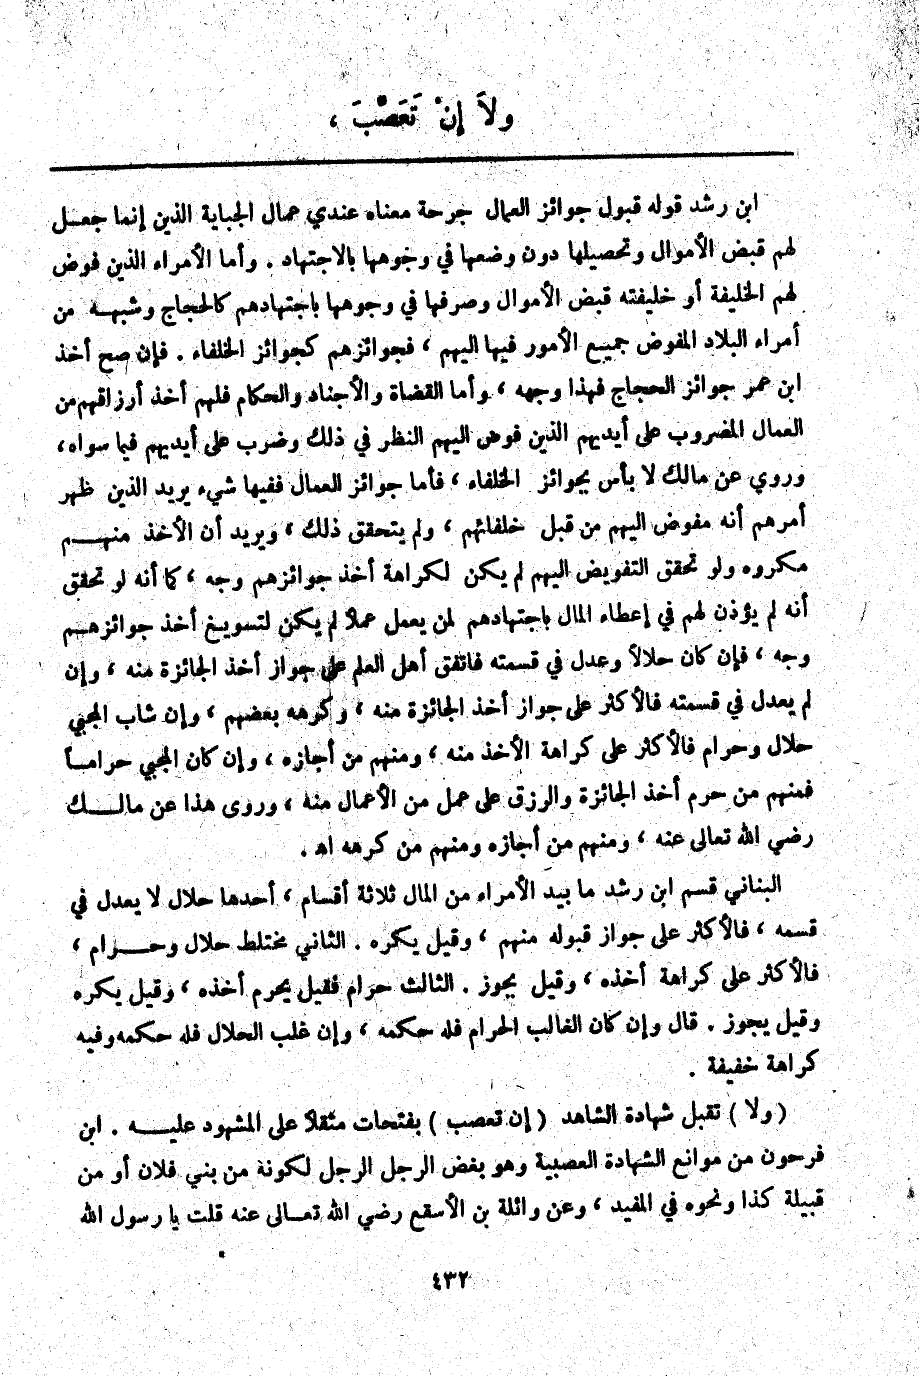 ولاَ إِنْ تَعَصَّبَ ،
ابن رشد قوله قبول جوائز العمال جرحة معناه عندي عمال الجباية الذين إنما جعـل
لهم قبض الأموال وتحصيلها دون وضعها في وجوهها بالاجتهاد . وأما الأمراء الذين فوض
لهم الخليفة أو خليفته قبض الأموال وصرفها في وجوهها باجتهادهم كالحجاج وشبهـه من
أمراء البلاد المفوض جميع الأمور فيها اليهم ، فجوائزهم كجوائز الخلفاء . فإن صح أخذ
ابن عمر جوائز الحجاج فهذا وجهه ، وأما القضاة والأجناد والحكام فلهم أخذ أرزاقهم من
العمال المضروب على أيديهم الذين فوض اليهم النظر في ذلك وضرب على أيديهم فيما سواه،
وروي عن مالك لا بأس بجوائز الخلفاء ، فأما جوائز العمال ففيها شيء يريد الذين ظهر
أمرهم أنه مفوض اليهم من قبل خلفائهم ، ولم يتحقق ذلك ، ويريد أن الأخذ منهــم
مكروه ولو تحقق التفويض اليهم لم يكن لكراهة أخذ جوائزهم وجه ، كما أنه لو تحقق
أنه لم يؤذن لهم في إعطاء المال باجتهادهم لمن يعمل عملاً لم يكن لتسويغ أخذ جوائزهـم
وجه ، فإن كان حلالاً وعدل في قسمته فاتفق أهل العلم على جواز أخذ الجائزة منه ، وإن
لم يعدل في قسمته فالأكثر على جواز أخذ الجائزة منه ، وكرهه بعضهم ، وإن شاب المجبي
حلال وحرام فالأكثر على كراهة الأخذ منه ، ومنهم من أجازه ، وإن كان المجبي حرامـاً
فمنهم من حرم أخذ الجائزة والرزق على عمل من الأعمال منه ، وروى هذا عن مالــك
رضي الله تعالى عنه ، ومنهم من أجازه ومنهم من كرهه اه .
البناني قسم ابن رشد ما بيد الأمراء من المال ثلاثة أقسام ، أحدها حلال لا يعدل في
قسمه ، فالأكثر على جواز قبوله منهم ، وقيل يكره . الثاني مختلط حلال وحــرام ،
فالأكثر على كراهة أخذه ، وقيل يجوز . الثالث حرام فقيل يحرم أخذه ، وقيل يكره
وقيل يجوز . قال وإن كان الغالب الحرام فله حكمه ، وإن غلب الحلال فله حكمه وفيه
كراهة خفيفة .
( ولا ) تقبل شهادة الشاهد ( إن تعصب ) بفتحات مثقلاً على المشهود عليــه . ابن
فرحون من موانع الشهادة العصبية وهو بغض الرجل الرجل لكونه من بني فلان أو من
قبيلة كذا ونحوه في المفيد ، وعن واثلة بن الأسقع رضي الله تعـالى عنه قلت يا رسول الله
٤٣٢